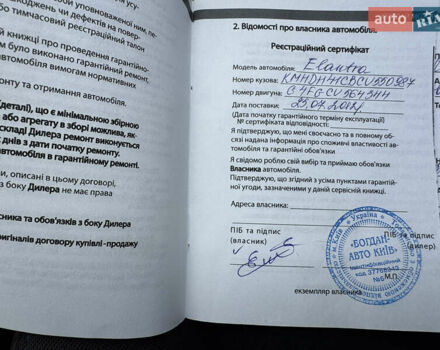 уповноваженої ним, пе-
коджень чи дефектів на повер-
тимчасовий реєстраційний талон
книжці про проведення гарантійно-
було виконано гарантійний ремонт
автомобіля вимогам нормативних
монту та отримання автомобіля.
деталі), що є мінімальною збірною
або агрегату в зборі можлива, як-
складі Дилера ремонт виконують
днів з дати початку ремонту.
автомобіля в гарантійному ремонті.
описані в цьому договорі,
з боку Дилера не має права
сника та обов'язків з боку Дилера
оригіналів договору купівлі-продажу
AUTO RIA
2. Відомості про власника автомобіля.
Реєстраційний сертифікат
Модель автомобіля: Elantra
Номер кузова: KMHDH41CBCU550987
Номер двигуна: G4FGCU564344
Дата поставки: 23.07.2012
(Дата початку гарантійного терміну експлуатації)
№ сертифіката відповідності:
Я підтверджую, що мені своєчасно та в повному обся-
зі надана інформація про споживчі властивості автомобіля
та гарантійні обов'язки
Я свідомо роблю свій вибір та приймаю обов'язки
Власника автомобіля.
Підтверджую, що згідний з усіма пунктами гарантій-
ної угоди, зазначеними у даній сервісній книжці.
Адреса власника:
ПІБ та підпис
(власник)
ПІБ та підпис
(дилер)
Україна
м. Київ
«БОГДАН-
АВТО КИЇВ»
Ідентифікаційний
код 37768343
№6
М.П.
екземпляр власника